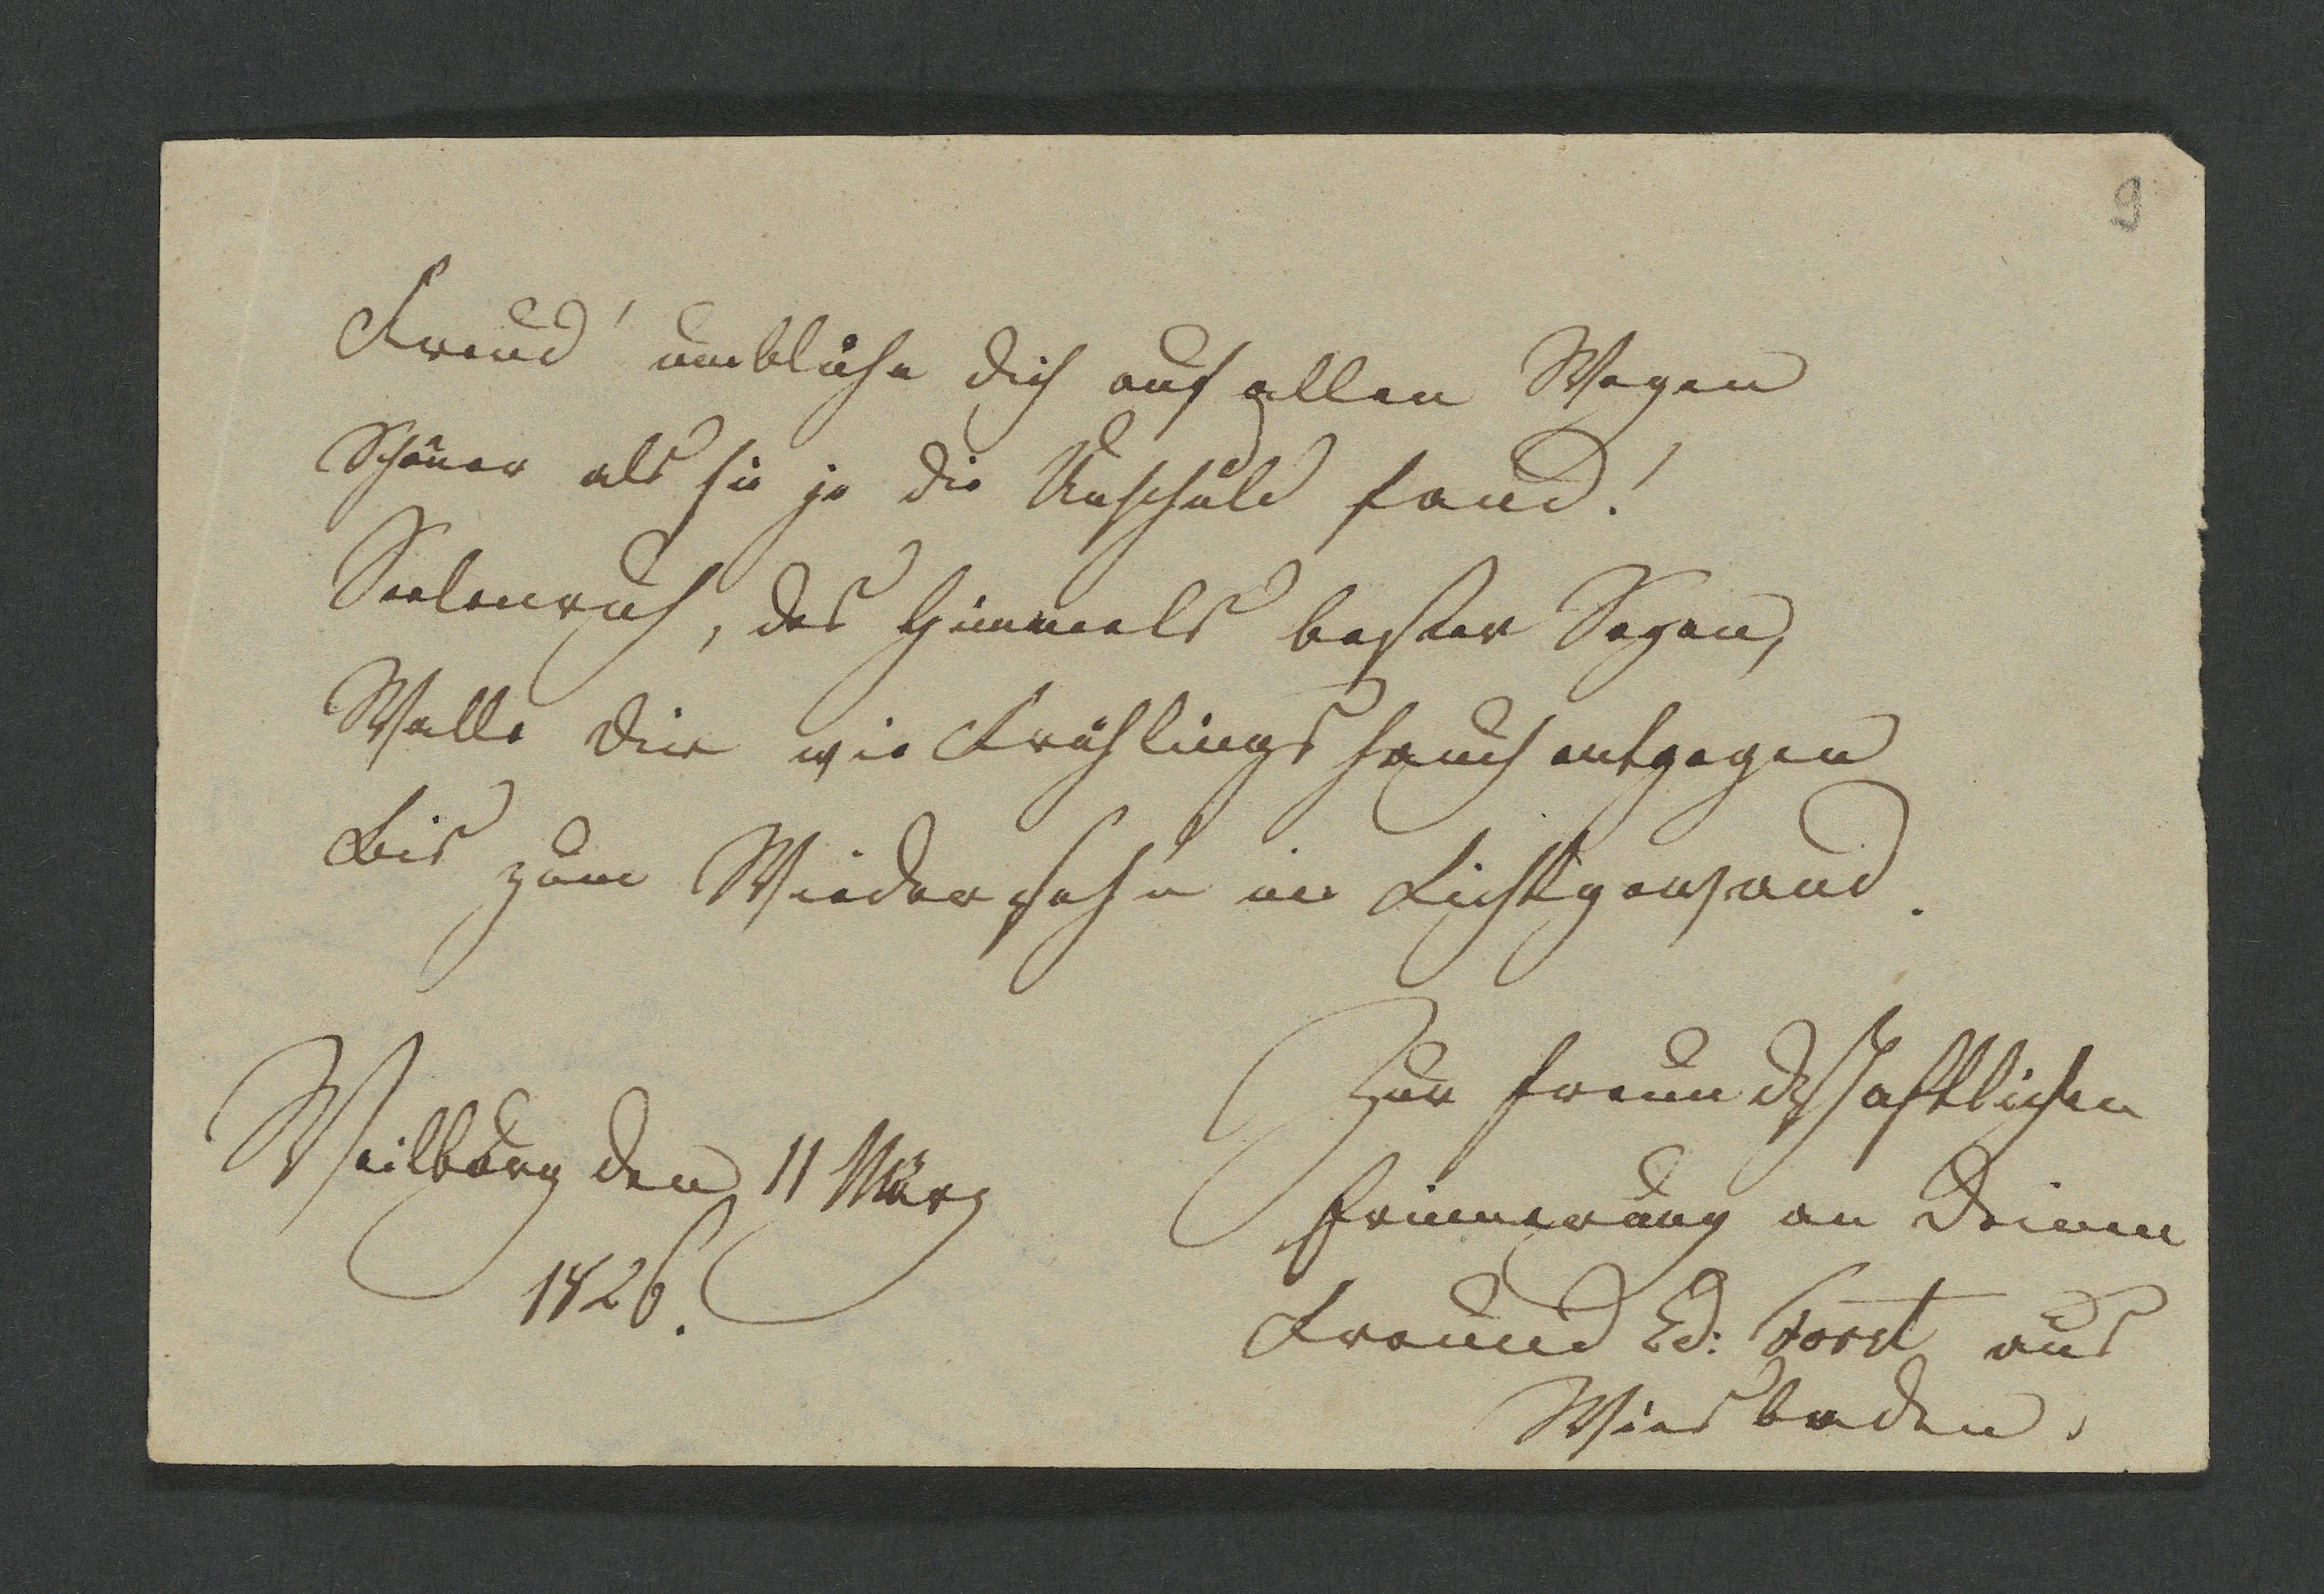 9
Freud' umblühe dich auf allen Wegen
Schöner als sie je die Unschuld fand!
Seelenruh, des Himmels bester Segen,
Walle dir wie Frühlingshauch entgegen
Bis zum Wiedersehn in Lichtgewand.
Weilburg den 11 März
1826.
Zur freundschaftlichen
Erinnerung an Deinen
Freund Ed: Forst aus
Wiesbaden.